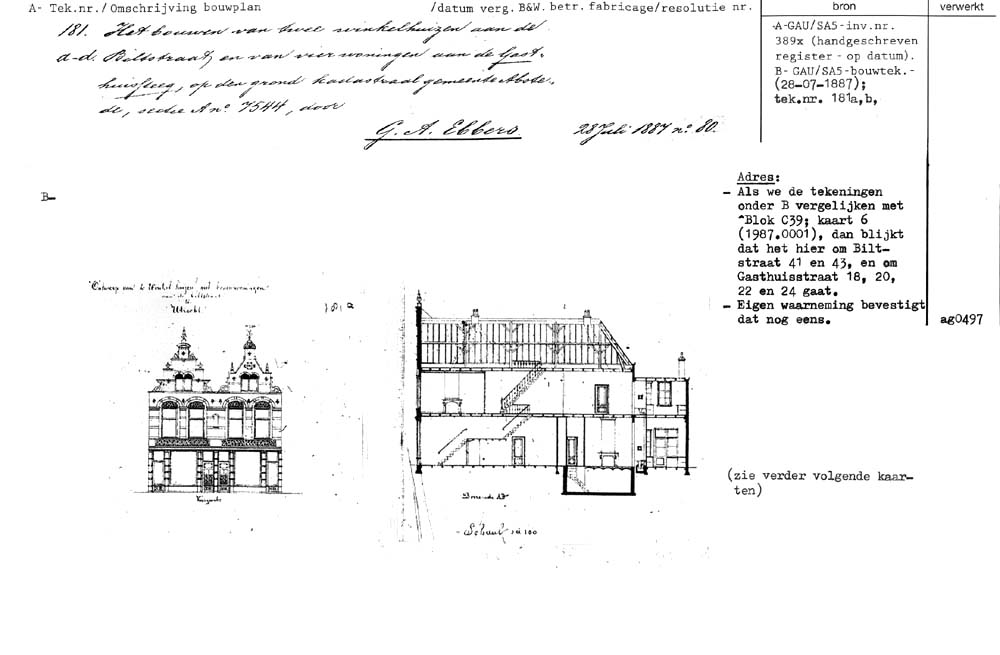 A- Tek.nr./Omschrijving bouwplan /datum verg. B&W. betr. fabricage/resolutie nr. bron verwerkt
181. Het bouwen van twee winkelhuizen aan de
a-d. Biltstraat, en van vier woningen aan de Gast-
huissteeg, op den grond kadastraal gemeente Abste-
de, sectie A no. 7544, door
G. A. Ebbers 28 Juli 1887 no. 80.
A-GAU/SA5-inv.nr.
389x (handgeschreven
register - op datum).
B- GAU/SA5-bouwtek.-
(28-07-1887);
tek.nr. 181a,b,
B-
Adres:
- Als we de tekeningen
onder B vergelijken met
"Blok C39; kaart 6
(1987.0001), dan blijkt
dat het hier om Bilt-
straat 41 en 43, en om
Gasthuisstraat 18, 20,
22 en 24 gaat.
- Eigen waarneming bevestigt
dat nog eens. ag0497
Ontwerp van 2 Winkel huizen met bovenwoningen
aan de Biltstraat
te
Utrecht
181a
Voorgevel
Doorsnede AB
Schaal 1 à 100
(zie verder volgende kaar-
ten)